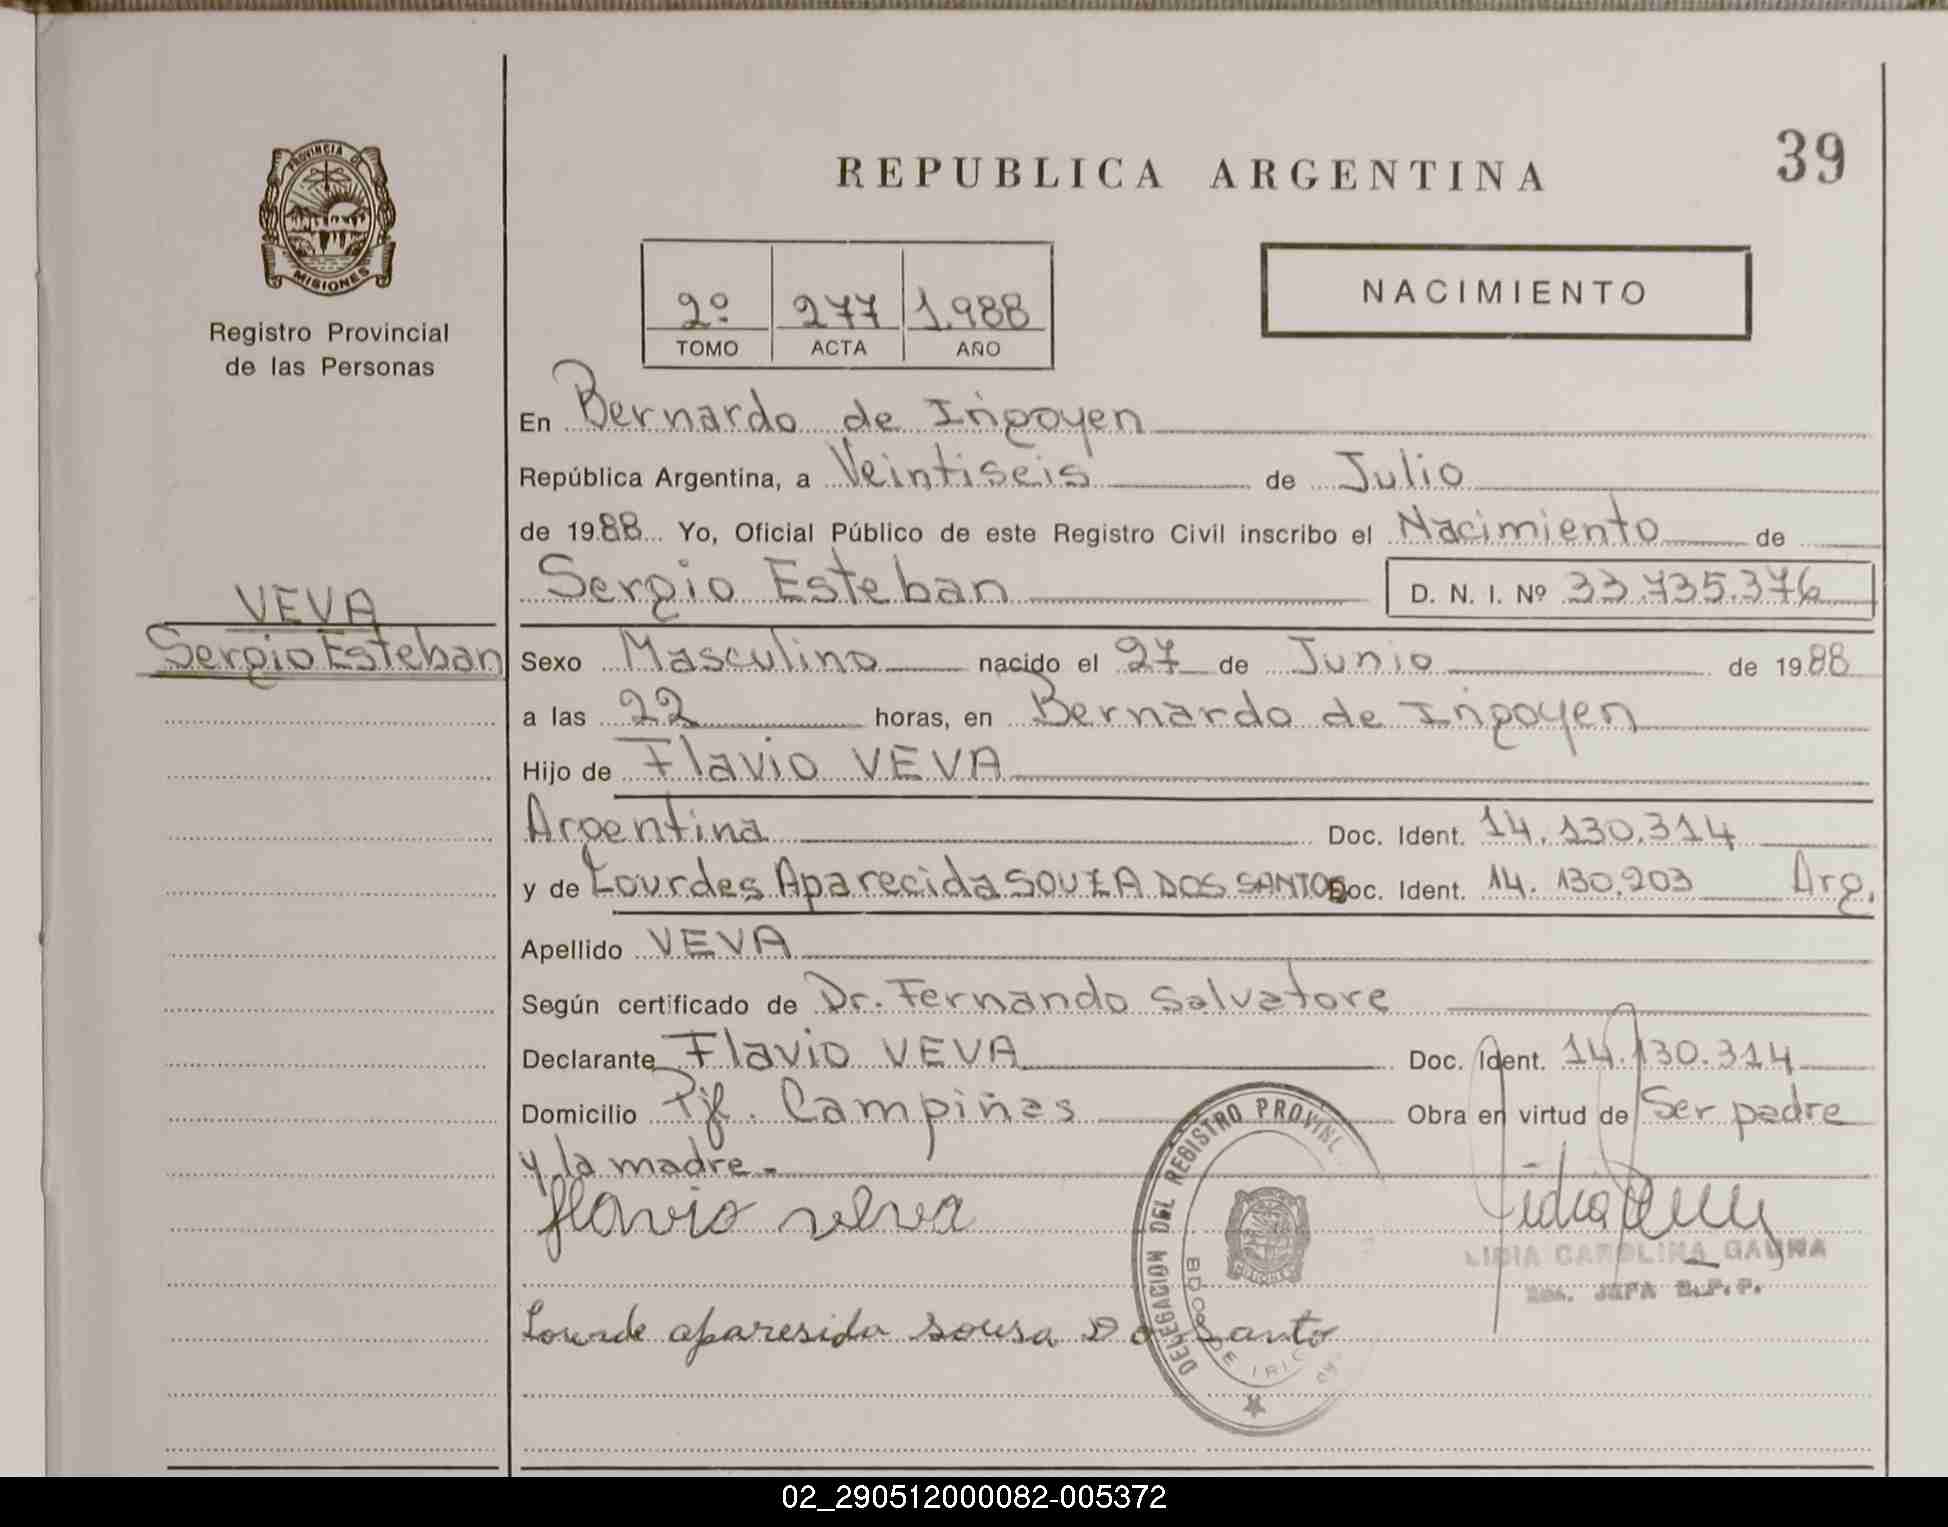 PROVINCIA DE
MISIONES
Registro Provincial
de las Personas
REPUBLICA ARGENTINA
39
2º 277 1.988
TOMO ACTA AÑO
NACIMIENTO
En Bernardo de Irigoyen
República Argentina, a Veintiseis de Julio
de 1988 Yo, Oficial Público de este Registro Civil inscribo el Nacimiento de
Sergio Esteban D. N. I. Nº 33.735.376
VEVA
Sergio Esteban
Sexo Masculino nacido el 27 de Junio de 1988
a las 22 horas, en Bernardo de Irigoyen
Hijo de Flavio VEVA
Argentina Doc. Ident. 14.130.314
y de Lourdes Aparecida SOUZA DOS SANTOS Doc. Ident. 14.130.203 Arg.
Apellido VEVA
Según certificado de Dr. Fernando Salvatore
Declarante Flavio VEVA Doc. Ident. 14.130.314
Domicilio Pje. Campiñas Obra en virtud de Ser padre
y la madre.-
flavio velva
LIDIA CAROLINA GAUNA
JEFA R.P.P.
Lourde aparesida sousa Do Santo
DELEGACION DEL REGISTRO PROVINC
BDO DE IRIGOYEN
02_290512000082-005372